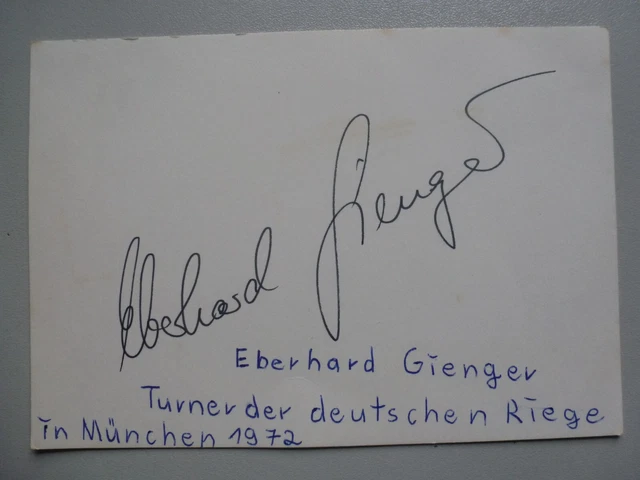 Eberhard Gienger
Eberhard Gienger
Turner der deutschen Riege
in München 1972